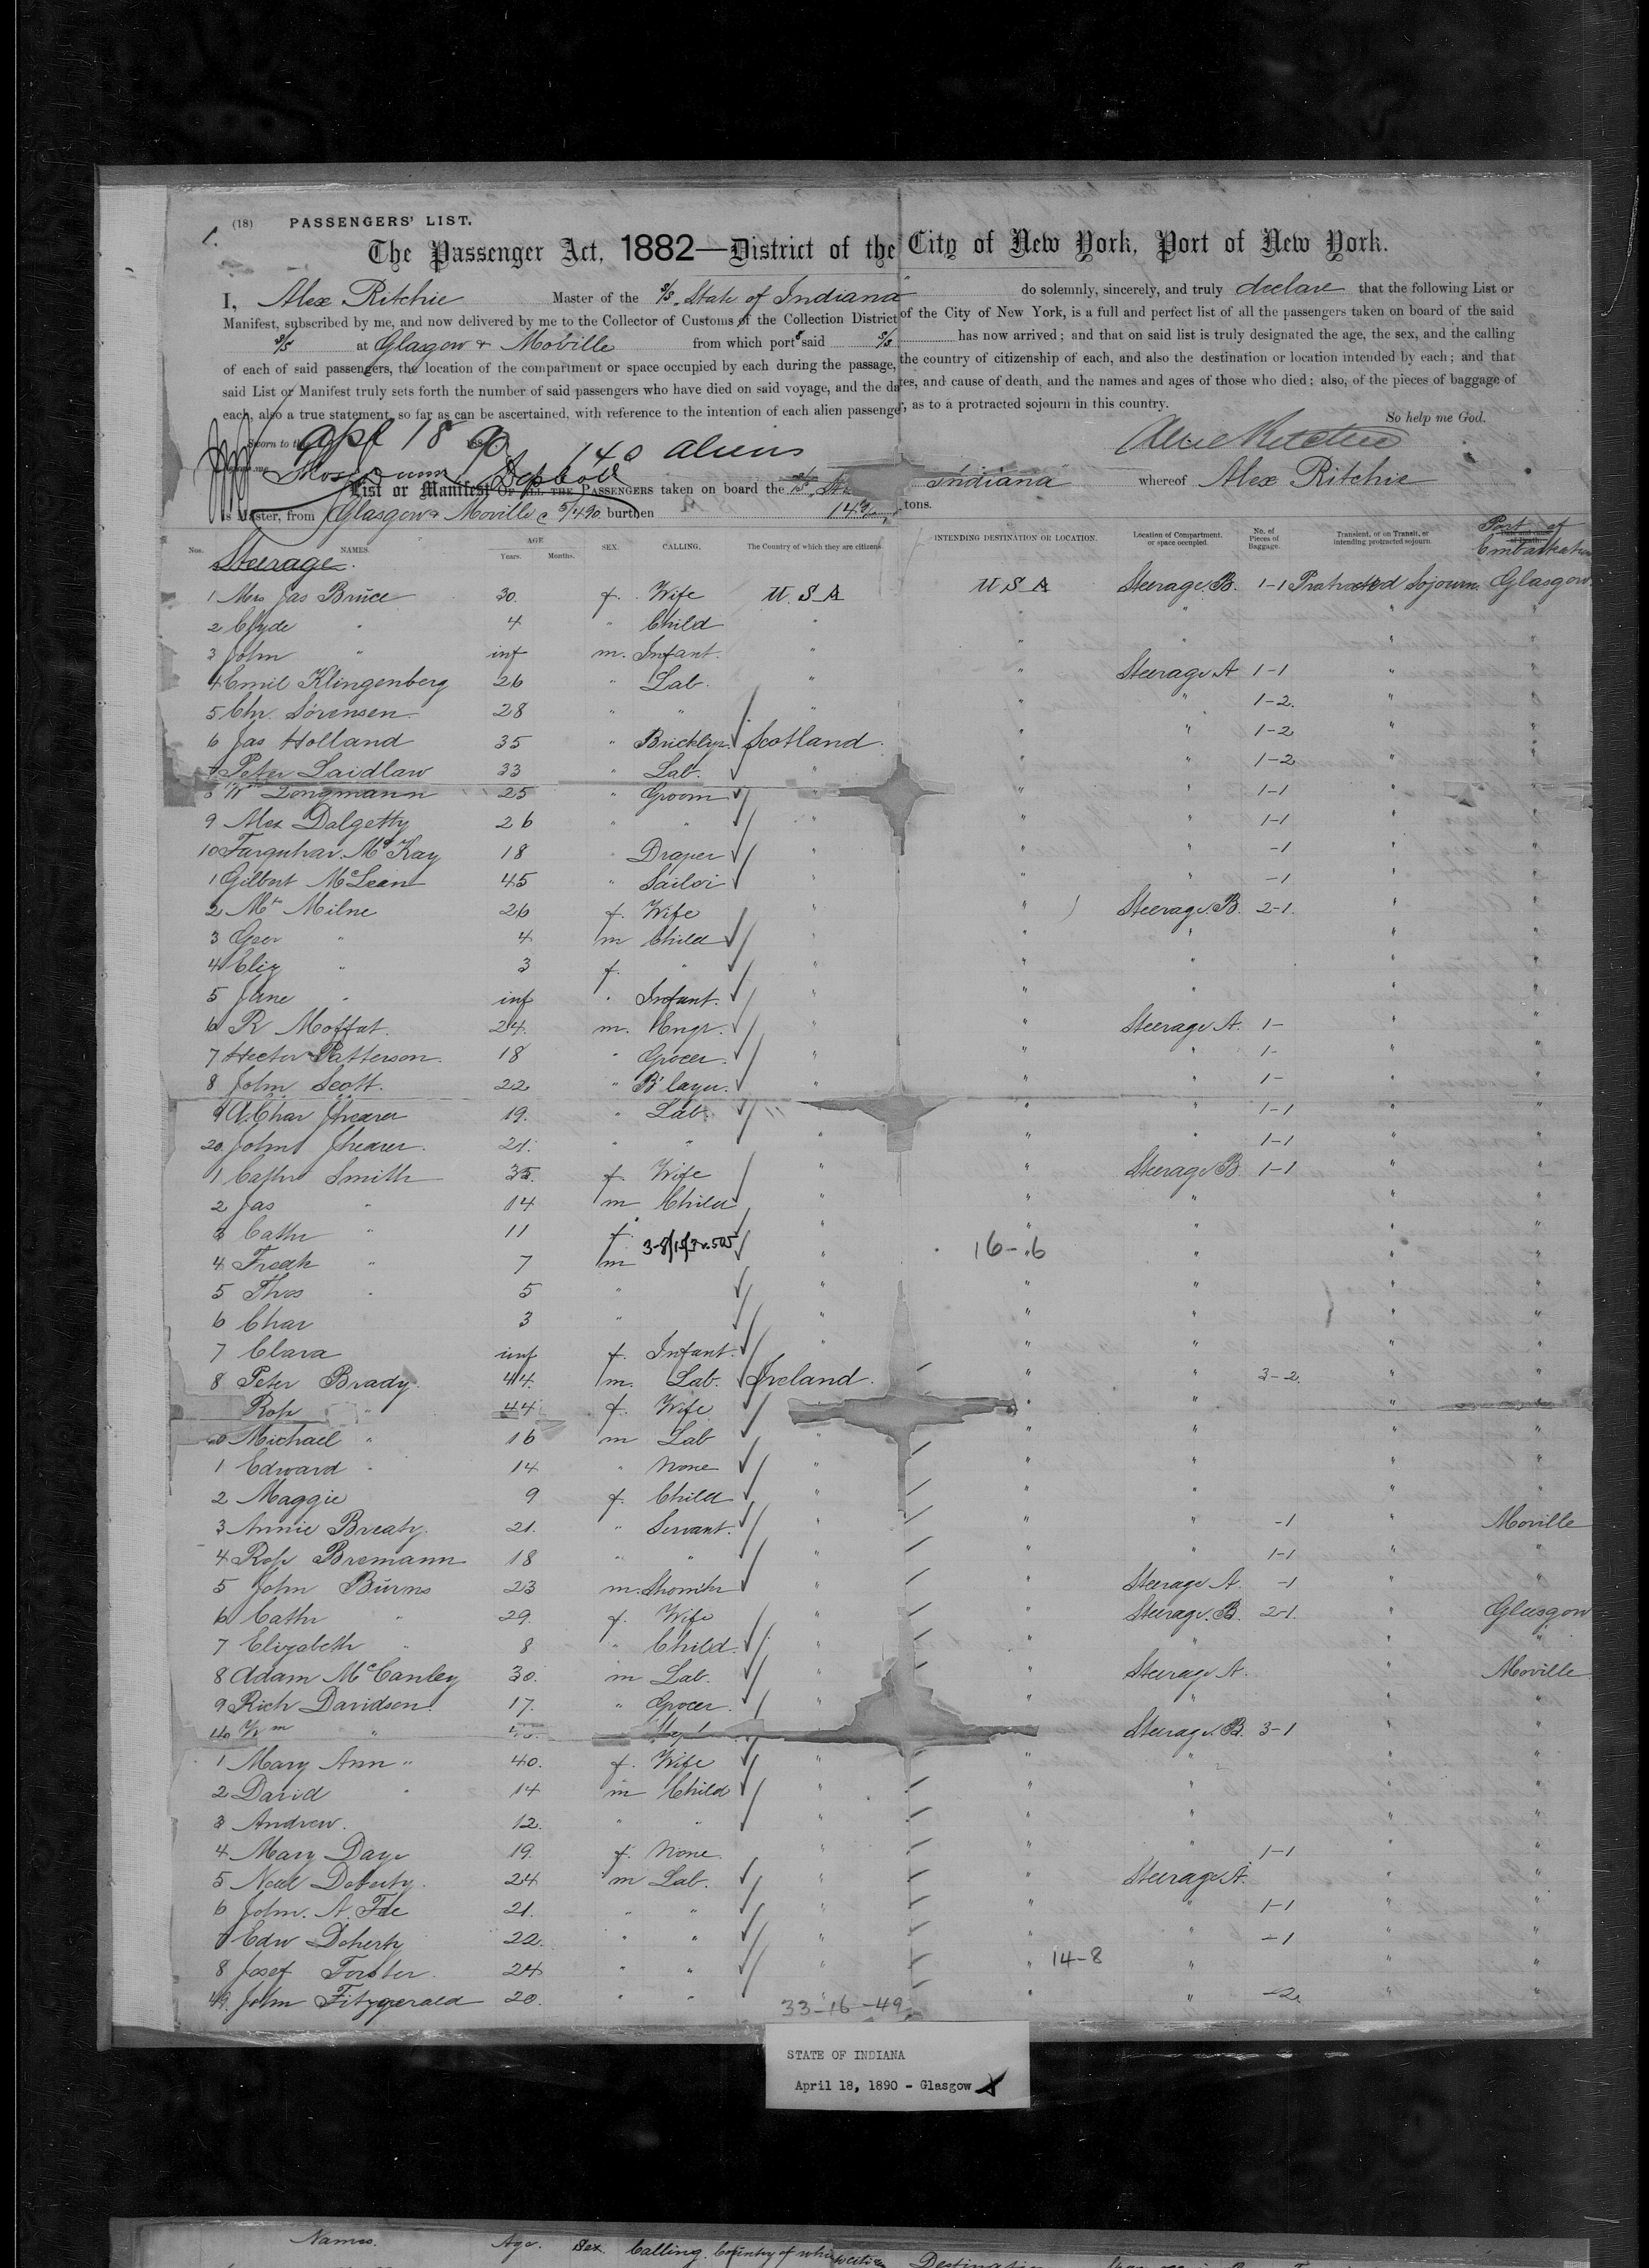 1.
(18) PASSENGERS' LIST.
The Passenger Act, 1882—District of the City of New York, Port of New York.
I, Alex Ritchie Master of the S/S. State of Indiana do solemnly, sincerely, and truly declare that the following List or
Manifest, subscribed by me, and now delivered by me to the Collector of Customs of the Collection District of the City of New York, is a full and perfect list of all the passengers taken on board of the said
S/S at Glasgow & Moville from which port s said S/S has now arrived; and that on said list is truly designated the age, the sex, and the calling
of each of said passengers, the location of the compartment or space occupied by each during the passage, the country of citizenship of each, and also the destination or location intended by each; and that
said List or Manifest truly sets forth the number of said passengers who have died on said voyage, and the dates, and cause of death, and the names and ages of those who died; also, of the pieces of baggage of
each, also a true statement, so far as can be ascertained, with reference to the intention of each alien passenger, as to a protracted sojourn in this country.
So help me God.
Sworn to this Apl 18 90 140 aliens Alex Ritchie
List or Manifest OF ALL THE PASSENGERS taken on board the Indiana whereof Alex Ritchie
is Master, from Glasgow & Moville burthen tons.
Nos. NAMES. AGE Years. Months. SEX. CALLING. The Country of which they are citizens. INTENDING DESTINATION OR LOCATION. Location of Compartment, or space occupied. No. of Pieces of Baggage. Transient, or on Transit, or intending protracted sojourn. Port of Embarkation
Steerage.
1 Mrs Jas Bruce 30. f. Wife U.S.A U S A Steerage B. 1-1 Protracted Sojourn Glasgow
2 Clyde " 4 " Child " " " "
3 John " inf m. Infant. " " " " "
4 Emil Klingenberg 26 " Lab. " " Steerage A 1-1 " "
5 Chr. Sorensen 28 " " " " " 1-2. " "
6 Jas Holland 35 " Bricklyr. Scotland. " " 1-2 " "
7 Peter Laidlaw 33 " Lab. " " " 1-2 " "
8 Wm Longmann 25 " Groom " " " 1-1 " "
9 Alex Dalgetty 26 " " " " " 1-1 " "
10 Farquhar McKay 18 " Draper " " " -1 " "
1 Gilbert McLean 45 " Sailor " " " -1 " "
2 Mrs Milne 26 f. Wife " " Steerage B. 2-1. " "
3 Geo " 4 m Child " " " " "
4 Eliz " 3 f. " " " " " "
5 Jane " inf " Infant. " " " " "
6 R Moffat. 24. m. Engr. " " Steerage A. 1- " "
7 Hector Patterson. 18 " Grocer. " " " 1- " "
8 John Scott. 22 " B'layer. " " " 1- " "
9 Shearer 19. " Lab. " " " 1-1 " "
20 John Shearer. 21. " " " " " 1-1 " "
1 Cathr Smith 35. f. Wife " " Steerage B. 1-1 " "
2 Jas " 14 m Child " " " " "
3 Cathr " 11 f. " " " " "
4 Fredk " 7 m " 16-6 " " "
5 Thos " 5 " " " " " "
6 Char 3 " " " " " "
7 Clara inf f. Infant. " " " " "
8 Peter Brady. 44. m. Lab. Ireland. " " 3-2. " "
Rose " 44 f. Wife " " " "
30 Michael " 16 m Lab " " " " "
1 Edward " 14 " None " " " " "
2 Maggie 9 f. Child " " " " "
3 Annie Breaty. 21. " Servant. " " " -1 " Moville
4 Rose Bremann 18 " " " " " 1-1 " "
5 John Burns 23 m. " " Steerage A. -1 " "
6 Cathr " 29. f. Wife " " Steerage. B. 2-1. " Glasgow
7 Elizabeth " 8 " Child. " " " " "
8 Adam McCanley 30. m Lab. " " Steerage A. " Moville
9 Rich Davidson. 17. " Grocer. " " " " "
40 Wm " Steerage. B. 3-1 " "
1 Mary Ann " 40. f. Wife " " " " "
2 David " 14 m Child " " " " "
3 Andrew. 12. " " " " " " "
4 Mary Daye 19. f. None. " " " 1-1 " "
5 Neal Doherty. 24 m Lab. " " Steerage A. " "
6 John. A. Fde 21. " " " " " 1-1 " "
7 Edw Doherty 22. " " " " -1 " "
8 Josef Forster. 24 " " " " 14-8 " " "
49. John Fitzgerald 20. " " " " " -2 " "
33-16-49
STATE OF INDIANA
April 18, 1890 - Glasgow X
Names. Age. Sex Calling. Country of which citizen Destination